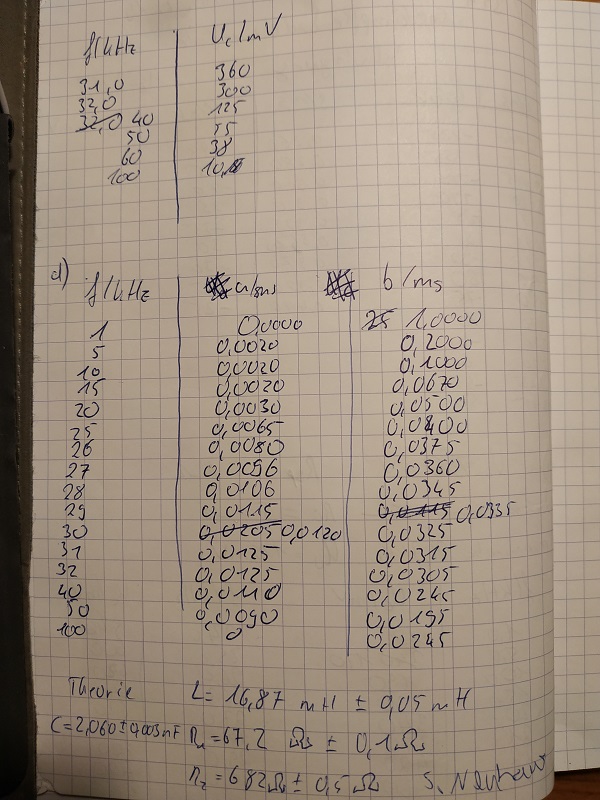 f/kHz U_c/mV
31,0 360
32,0 300
32,0 40 125
50 55
60 38
100 10,0
d) f/kHz a/ms b/ms
1 0,0000 25 1,0000
5 0,0020 0,2000
10 0,0020 0,1000
15 0,0020 0,0670
20 0,0030 0,0500
25 0,0065 0,0400
26 0,0080 0,0375
27 0,0096 0,0360
28 0,0106 0,0345
29 0,0115 0,0115 0,0335
30 0,0205 0,0120 0,0325
31 0,0125 0,0315
32 0,0125 0,0305
40 0,0110 0,0245
50 0,0090 0,0195
100 0 0,0245
Theorie L = 16,87 mH ± 0,05 mH
C = 2,060 ± 0,003 nF R₁ = 67,2 Ω ± 0,1 Ω
R₂ = 682 Ω ± 0,5 Ω S.